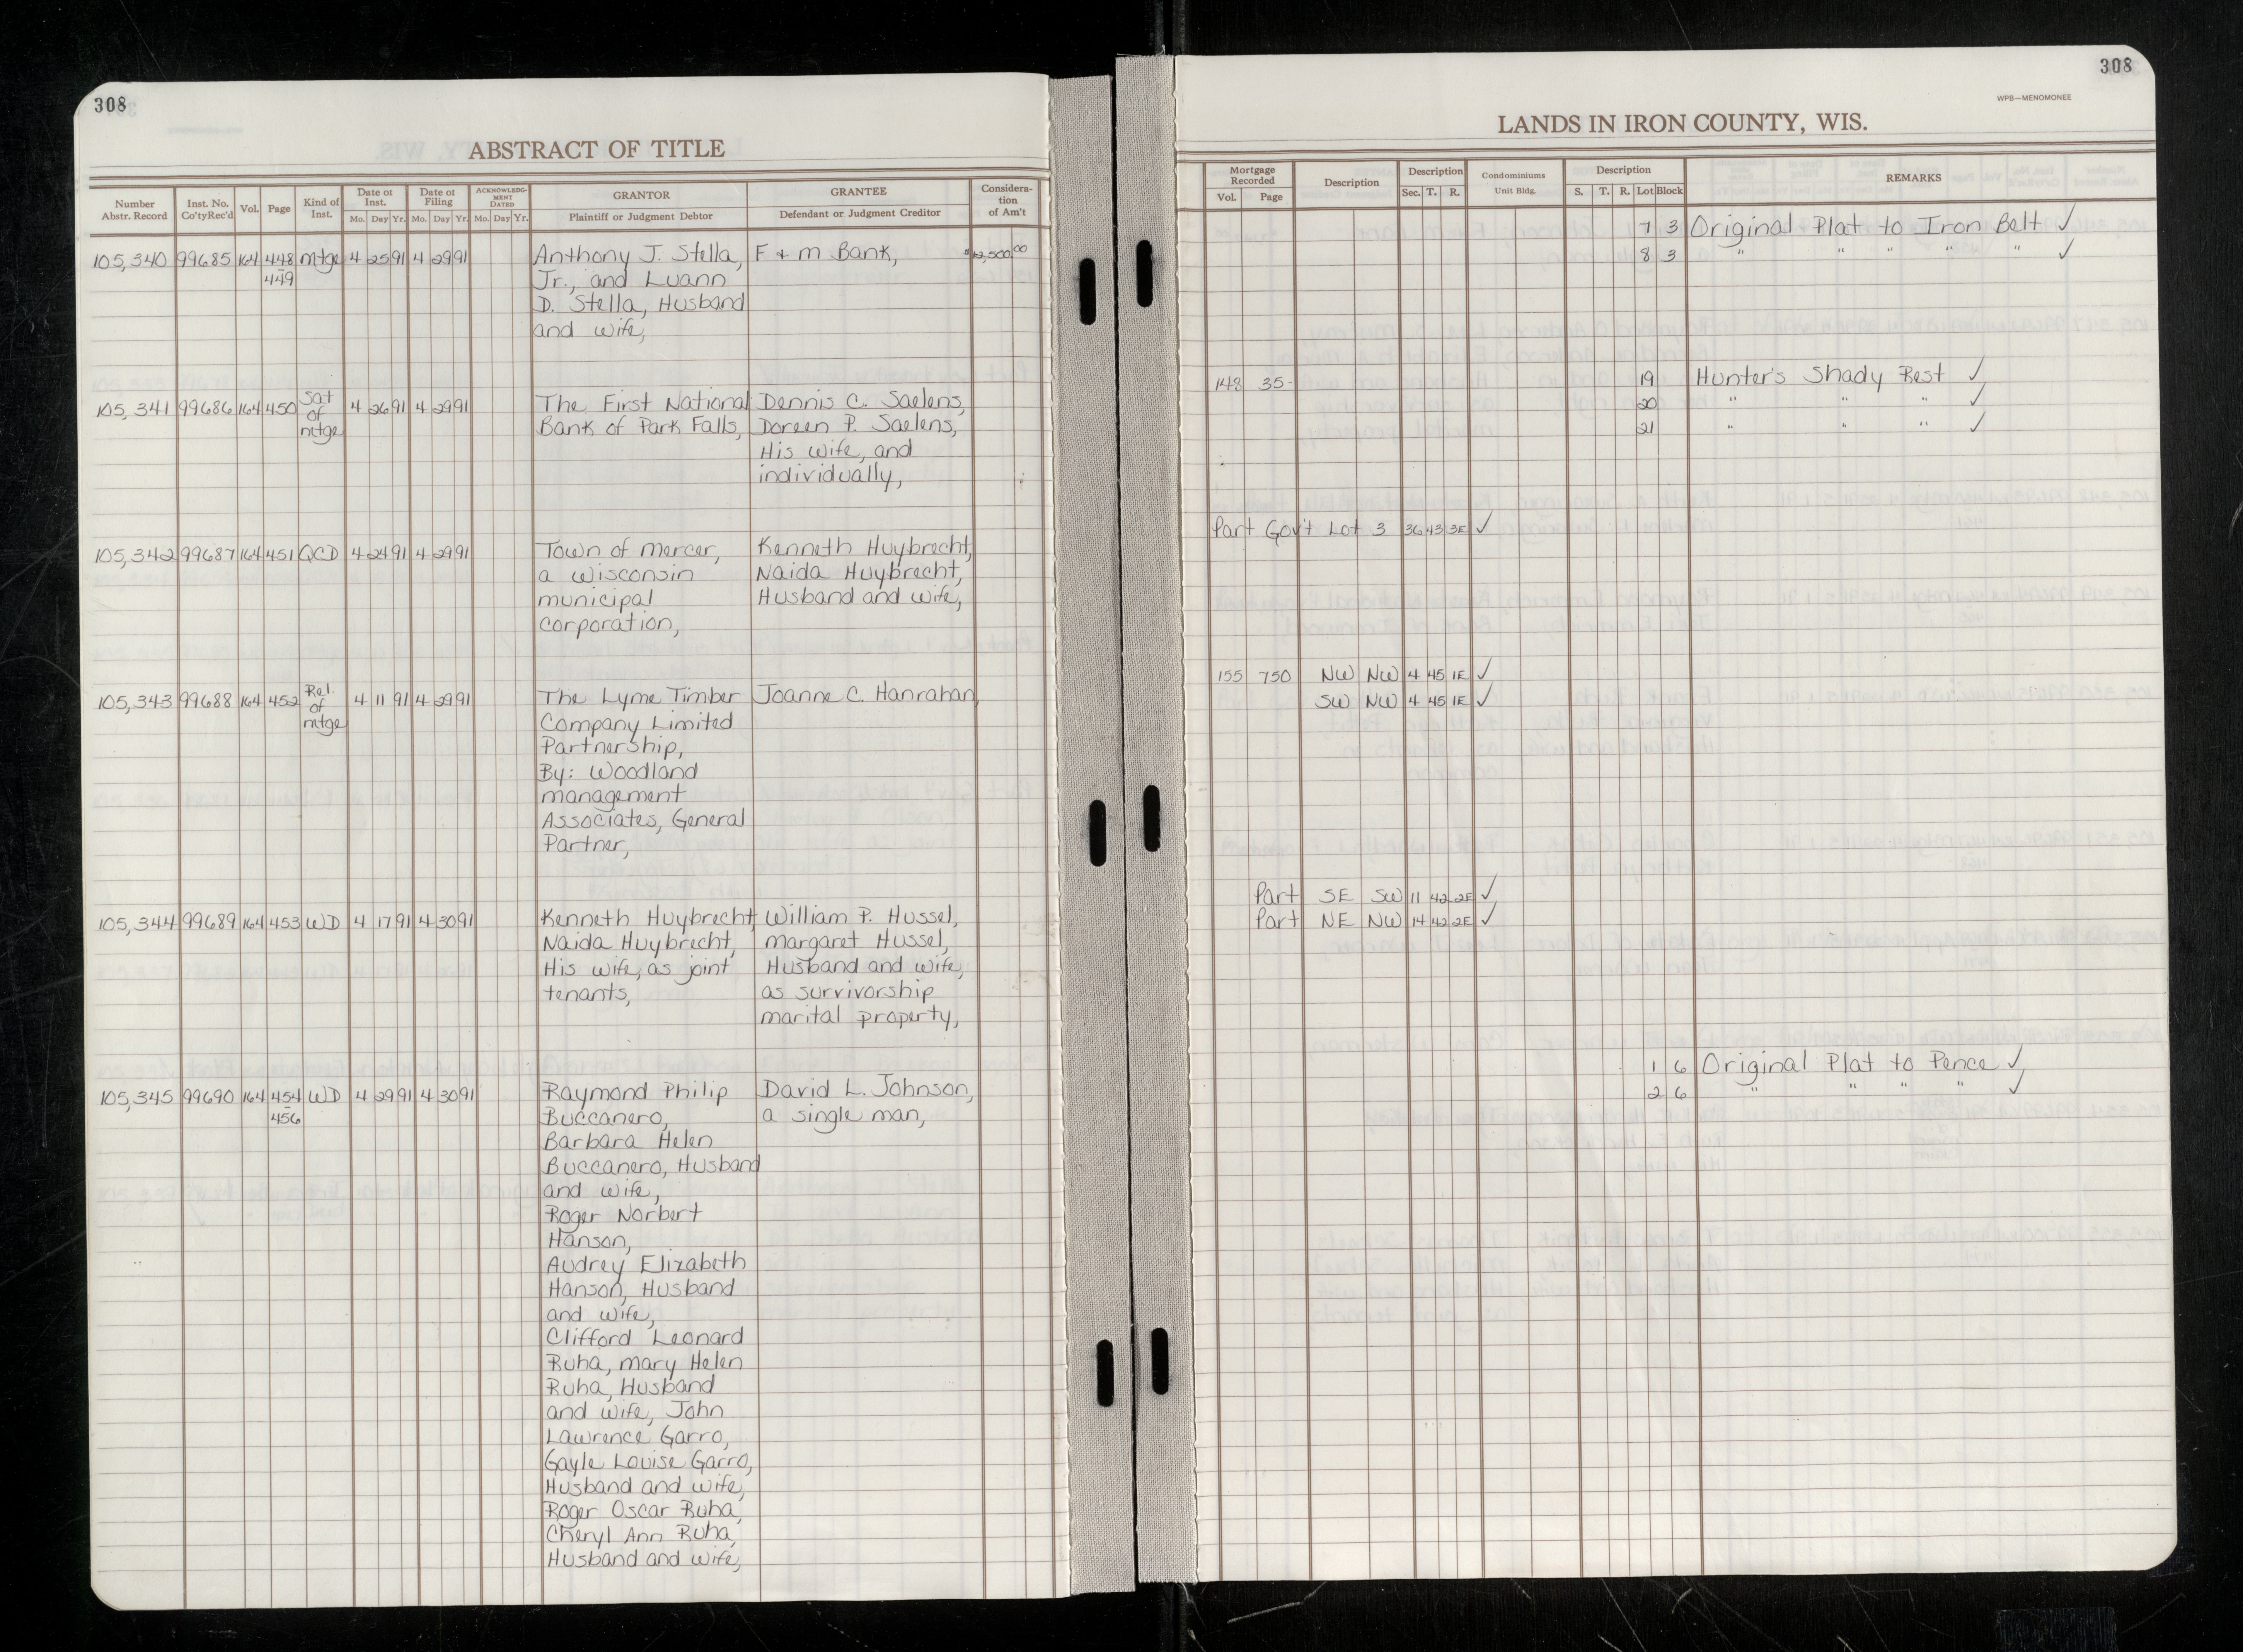 308
ABSTRACT OF TITLE
Number Abstr. Record
Inst. No. Co'ty Rec'd
Vol.
Page
Kind of Inst.
Date of Inst.
Mo. Day Yr.
Date of Filing
Mo. Day Yr.
ACKNOWLEDG-
MENT
DATED
Mo. Day Yr.
GRANTOR
Plaintiff or Judgment Debtor
GRANTEE
Defendant or Judgment Creditor
Considera-
tion
of Am't
105,340 99685 164 448 mtge 4 25 91 4 29 91 Anthony J. Stella, F & m Bank, $12,500.00
449 Jr., and Luann
D. Stella, Husband
and wife,
105,341 99686 164 450 Sat of mtge 4 26 91 4 29 91 The First National Dennis C. Saelens,
Bank of Park Falls, Doreen P. Saelens,
His wife, and
individually,
105,342 99687 164 451 QCD 4 24 91 4 29 91 Town of mercer, Kenneth Huybrecht,
a Wisconsin Naida Huybrecht,
municipal Husband and wife,
corporation,
105,343 99688 164 452 Rel. of mtge 4 11 91 4 29 91 The Lyme Timber Joanne C. Hanrahan,
Company Limited
Partnership,
By: Woodland
management
Associates, General
Partner,
105,344 99689 164 453 WD 4 17 91 4 30 91 Kenneth Huybrecht, William P. Hussel,
Naida Huybrecht, margaret Hussel,
His wife, as joint Husband and wife,
tenants, as survivorship
marital property,
105,345 99690 164 454 WD 4 29 91 4 30 91 Raymond Philip David L. Johnson,
456 Buccanero, a single man,
Barbara Helen
Buccanero, Husband
and wife,
Roger Norbert
Hanson,
Audrey Elizabeth
Hanson, Husband
and wife,
Clifford Leonard
Ruha, mary Helen
Ruha, Husband
and wife, John
Lawrence Garro,
Gayle Louise Garro,
Husband and wife,
Roger Oscar Ruha,
Cheryl Ann Ruha,
Husband and wife,
308
WPB—MENOMONEE
LANDS IN IRON COUNTY, WIS.
Mortgage Recorded
Vol. Page
Description
Description
Sec. T. R.
Condominiums
Unit Bldg.
Description
S. T. R. Lot Block
REMARKS
7 3 Original Plat to Iron Belt ✓
8 3 " " " " " ✓
148 35 19 Hunter's Shady Rest ✓
20 " " " ✓
21 " " " ✓
Part Gov't Lot 3 36 43 3E ✓
155 750 NW NW 4 45 1E ✓
SW NW 4 45 1E ✓
Part SE SW 11 42 2E ✓
Part NE NW 14 42 2E ✓
1 6 Original Plat to Pence ✓
2 6 " " " " ✓